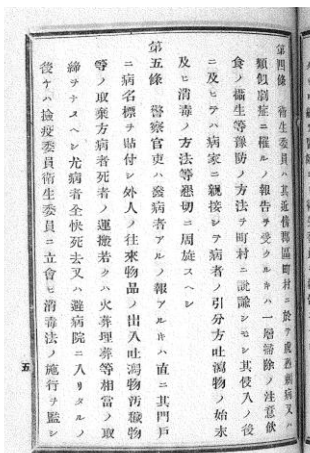 第四條 衛生委員ハ其近傍郡區町村ニ於テ虎列剌病又ハ
類似劇症ニ罹ルノ報告ヲ受クルキハ一層掃除ノ注意飲
食ノ攝生等豫防ノ方法ヲ町村ニ説諭シモシ其侵入ノ後
ニ及ヒテハ病家ニ親接シテ病者ノ引分方吐瀉物ノ始末
及ヒ消毒ノ方法等懇切ニ周旋スヘシ
第五條 警察官吏ハ發病者アルノ報アルキハ直ニ其門戸
ニ病名標ヲ貼付シ外人ノ往來物品ノ出入吐瀉物汚穢物
等ノ取棄方病者死者ノ運搬若クハ火葬埋葬等相當ノ取
締ヲナスヘシ尤病者全快死去又ハ避病院ニ入リタルノ
後ケハ檢疫委員衛生委員ニ立會ヒ消毒法ノ施行ヲ監シ
五